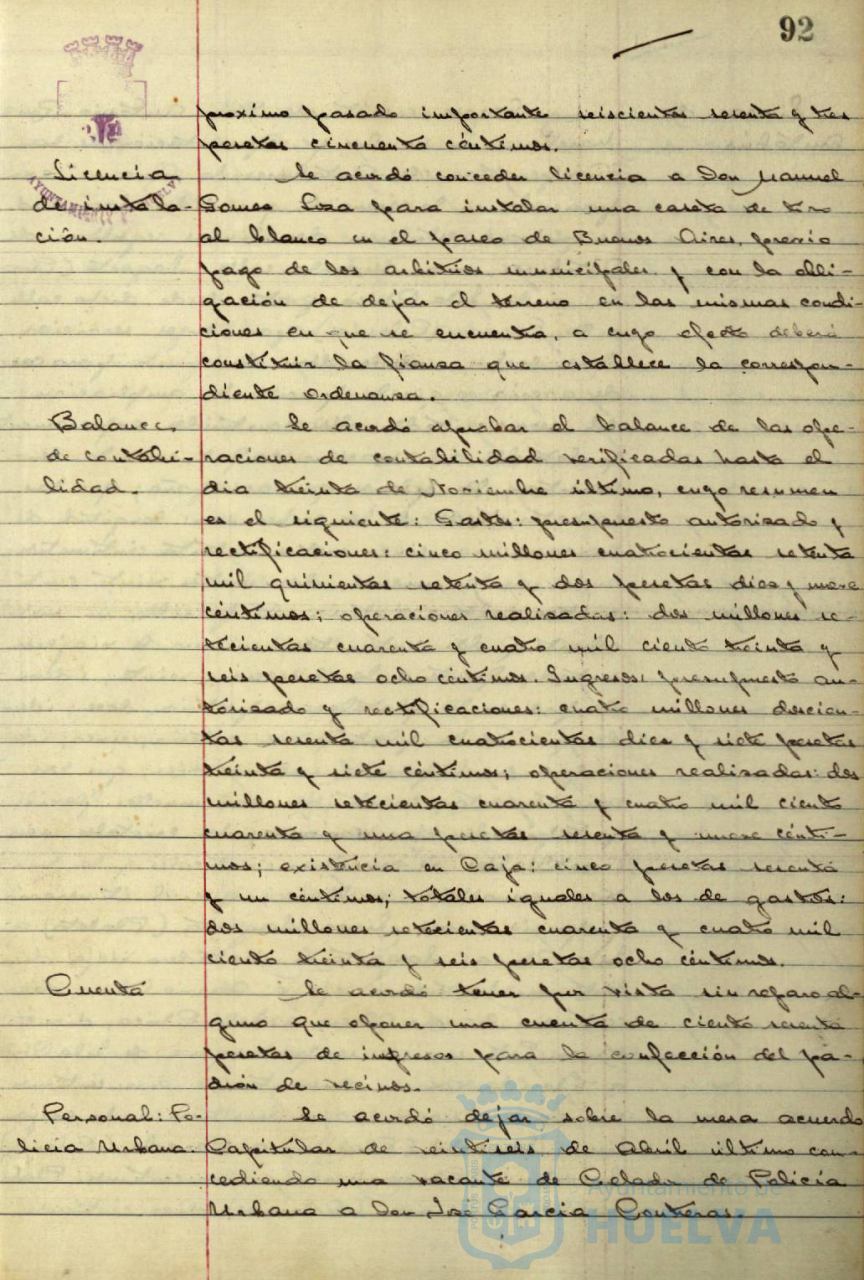 92
proximo pasado importante seiscientas sesenta y tres
pesetas cincuenta céntimos.
Licencia de instala-ción.
Se acordó conceder licencia a Don Manuel
Gomez Loza para instalar una caseta de tiro
al blanco en el paseo de Buenos Aires, previo
pago de los arbitrios municipales y con la obli-
gación de dejar el terreno en las mismas condi-
ciones en que se encuentra, a cuyo efecto deberá
constituir la fianza que establece la correspon-
diente Ordenanza.
Balance de contabi-lidad.
Se acordó aprobar el balance de las ope-
raciones de contabilidad verificadas hasta el
dia treinta de Noviembre último, cuyo resumen
es el siguiente: Gastos: presupuesto autorizado y
rectificaciones: cinco millones cuatrocientas setenta
mil quinientas setenta y dos pesetas diez y nueve
céntimos; operaciones realizadas: dos millones se-
tecientas cuarenta y cuatro mil ciento treinta y
seis pesetas ocho céntimos. Ingresos: presupuesto au-
torizado y rectificaciones: cuatro millones doscien-
tas sesenta mil cuatrocientas diez y siete pesetas
treinta y siete céntimos; operaciones realizadas: dos
millones setecientas cuarenta y cuatro mil ciento
cuarenta y una pesetas sesenta y nueve cénti-
mos; existencia en Caja: cinco pesetas sesenta
y un céntimos; totales iguales a los de gastos:
dos millones setecientas cuarenta y cuatro mil
ciento treinta y seis pesetas ocho céntimos.
Cuenta
Se acordó tener por vista sin reparo al-
guno que oponer una cuenta de ciento sesenta
pesetas de ingresos para la confección del pa-
drón de vecinos.
Personal: Po-licia Urbana.
Se acordó dejar sobre la mesa acuerdo
Capitular de veintiseis de Abril último con-
cediendo una vacante de Celador de Policía
Urbana a Don José García Contreras.
Ayuntamiento de
HUELVA